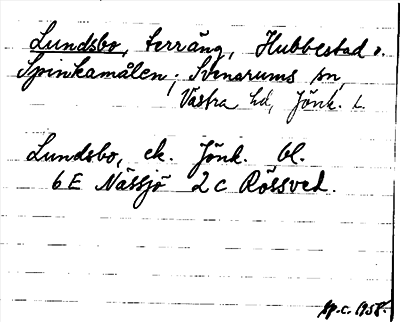 Lundsbo, terräng, Hubbestad o.
Spinkamålen, Svenarums sn,
Västra hd, Jönk. l.
Lundsbo, ek. Jönk. bl.
6 E Nässjö 2 c Rössved.
1958.